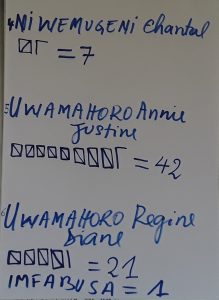 4 NIWEMUGENI Chantal
= 7
5 UWAMAHORO Annie
Justine
= 42
6 UWAMAHORO Regine
Diane
= 21
IMFABUSA = 1